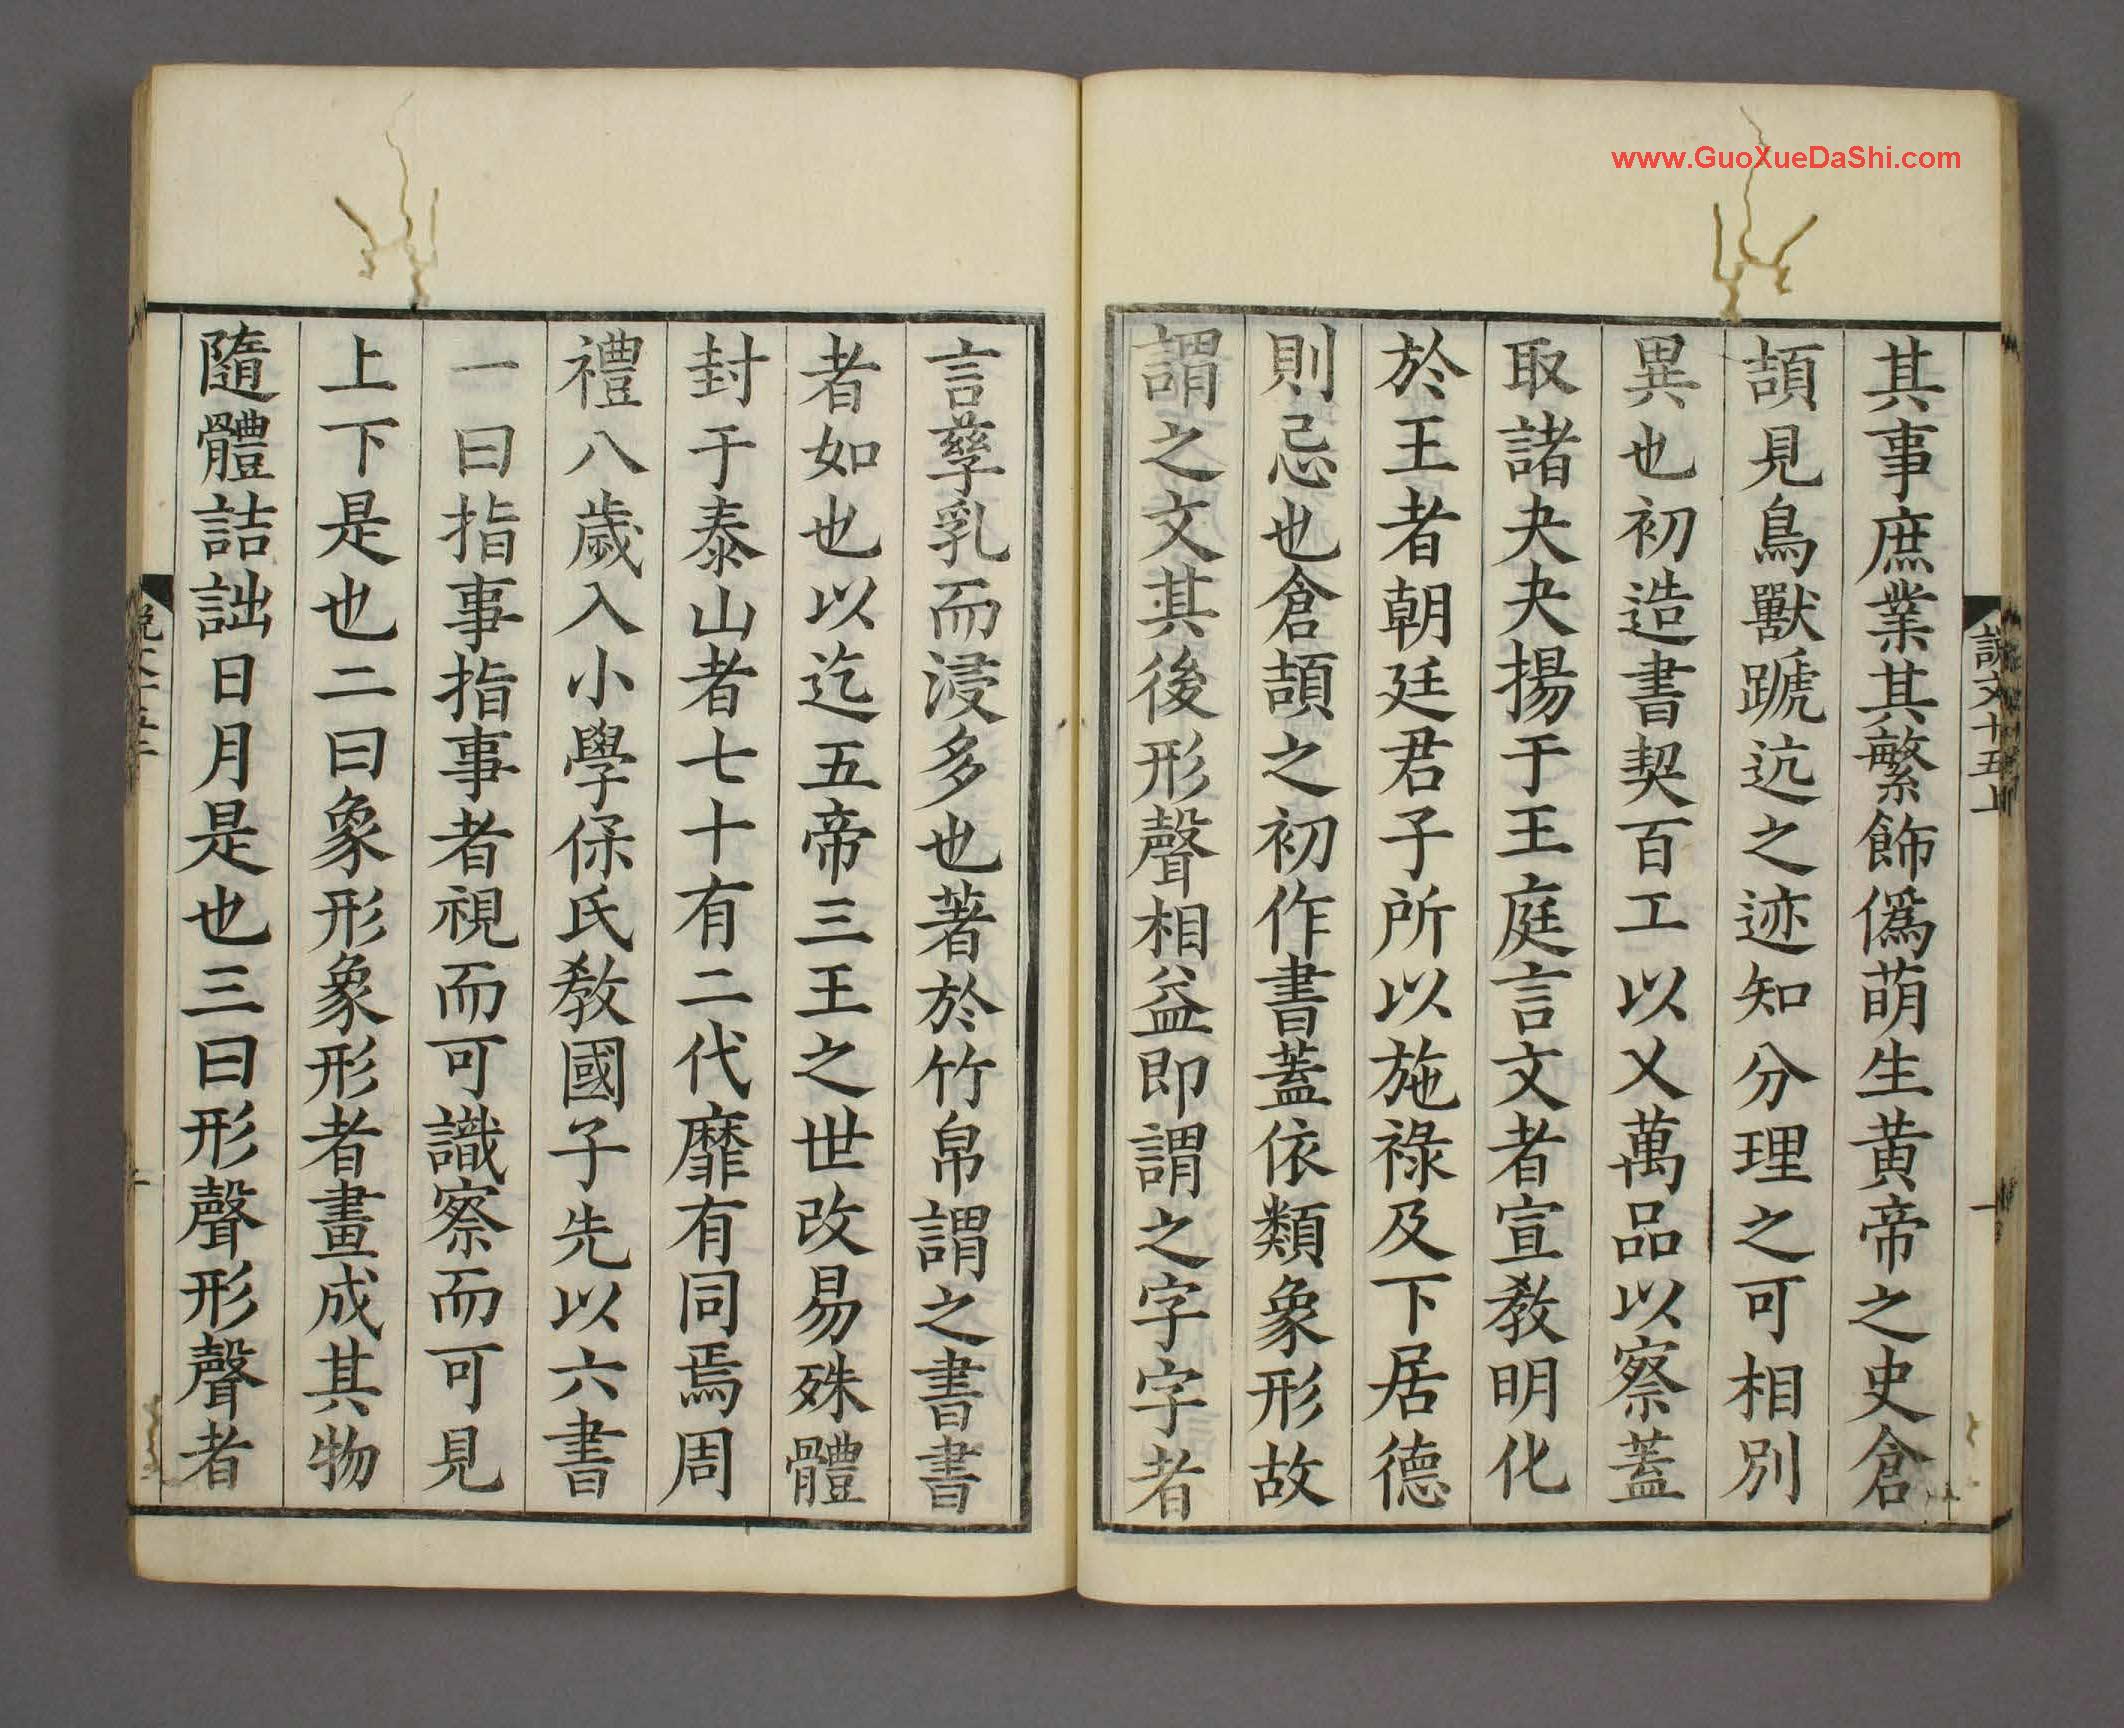 www.GuoXueDaShi.com
說文十五上
一
其事庶業其繁飾僞萌生黄帝之史倉
頡見鳥獸蹏迒之迹知分理之可相別
異也初造書契百工以乂萬品以察蓋
取諸夬夬揚于王庭言文者宣敎明化
於王者朝廷君子所以施祿及下居德
則忌也倉頡之初作書蓋依類象形故
謂之文其後形聲相益即謂之字字者
言孳乳而浸多也著於竹帛謂之書書
者如也以迄五帝三王之世改易殊體
封于泰山者七十有二代靡有同焉周
禮八歲入小學保氏敎國子先以六書
一曰指事指事者視而可識察而可見
上下是也二曰象形象形者畫成其物
隨體詰詘日月是也三曰形聲形聲者